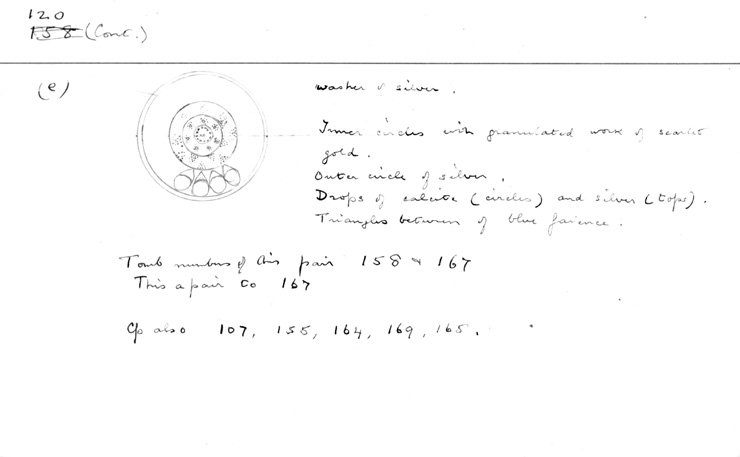 120
158 (Cont.)
(e)
washer of silver.
Inner circles with granulated work of scarlet
gold.
Outer circle of silver.
Drops of calcite (circles) and silver (tops).
Triangles between of blue faience.
Tomb numbers of this pair 158 & 167
This a pair to 167
Cp also 107, 155, 164, 169, 165.